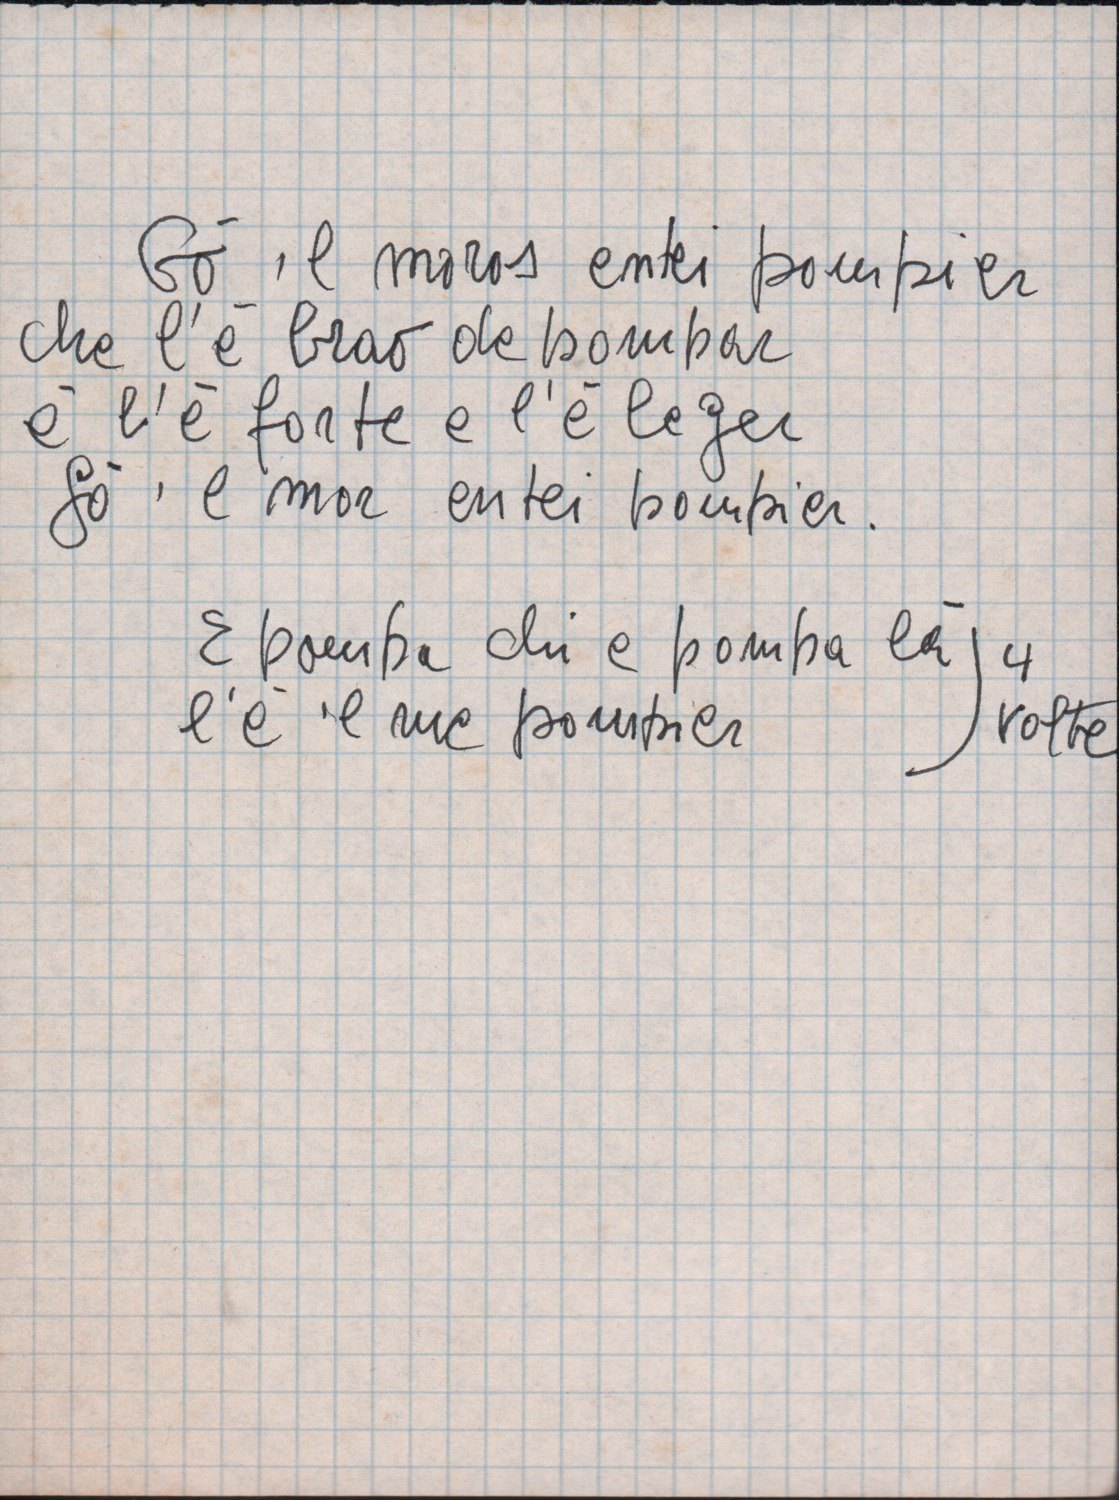 Gō 'l moros entei pompier
che l'ē braō de pompar
ē l'ē forte e l'ē leger
gō 'l mor entei pompier.
E pompa chi e pompa lā ) 4
l'ē 'l me pompier volte